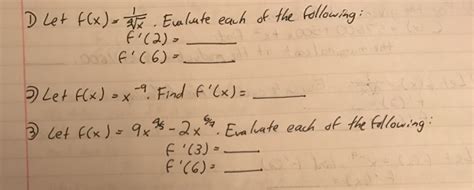 1) Let f(x) = 1/∜x. Evaluate each of the following:
f'(2) = ____
f'(6) = ____
2) Let f(x) = x^-9. Find f'(x) = ____
3) Let f(x) = 9x -2x. Evaluate each of the following:
f'(3) = ____
f'(6) = ____